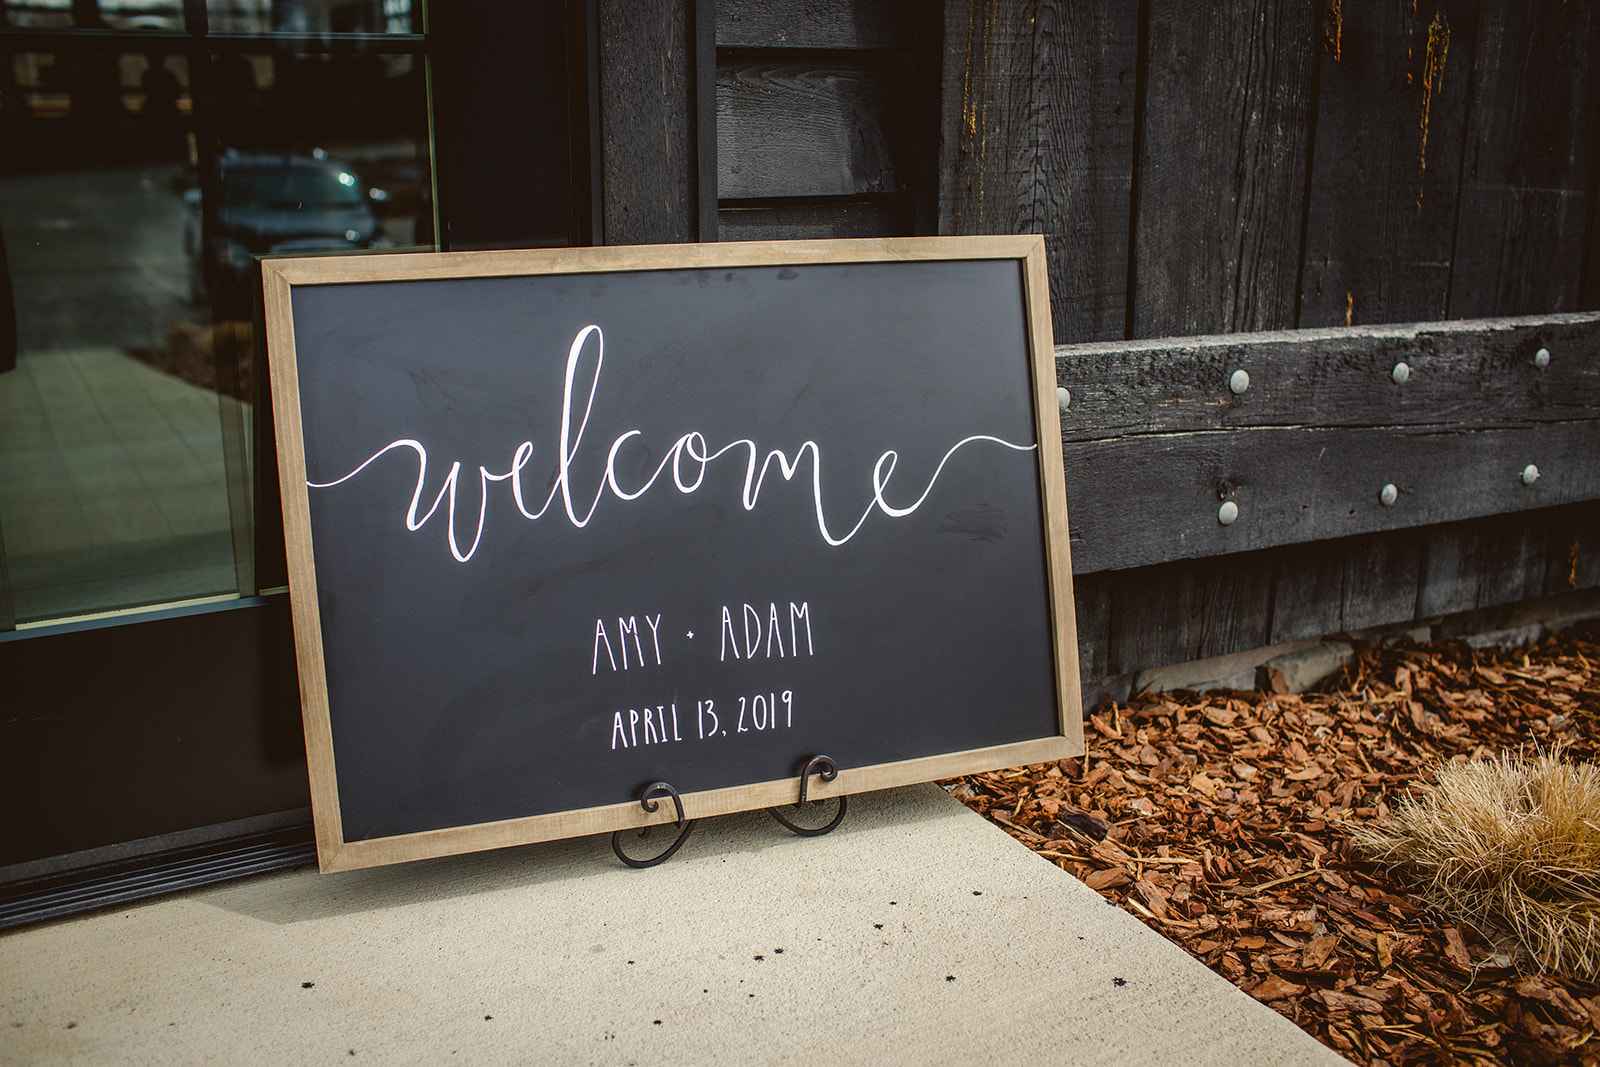 welcome
AMY + ADAM
APRIL 13, 2019